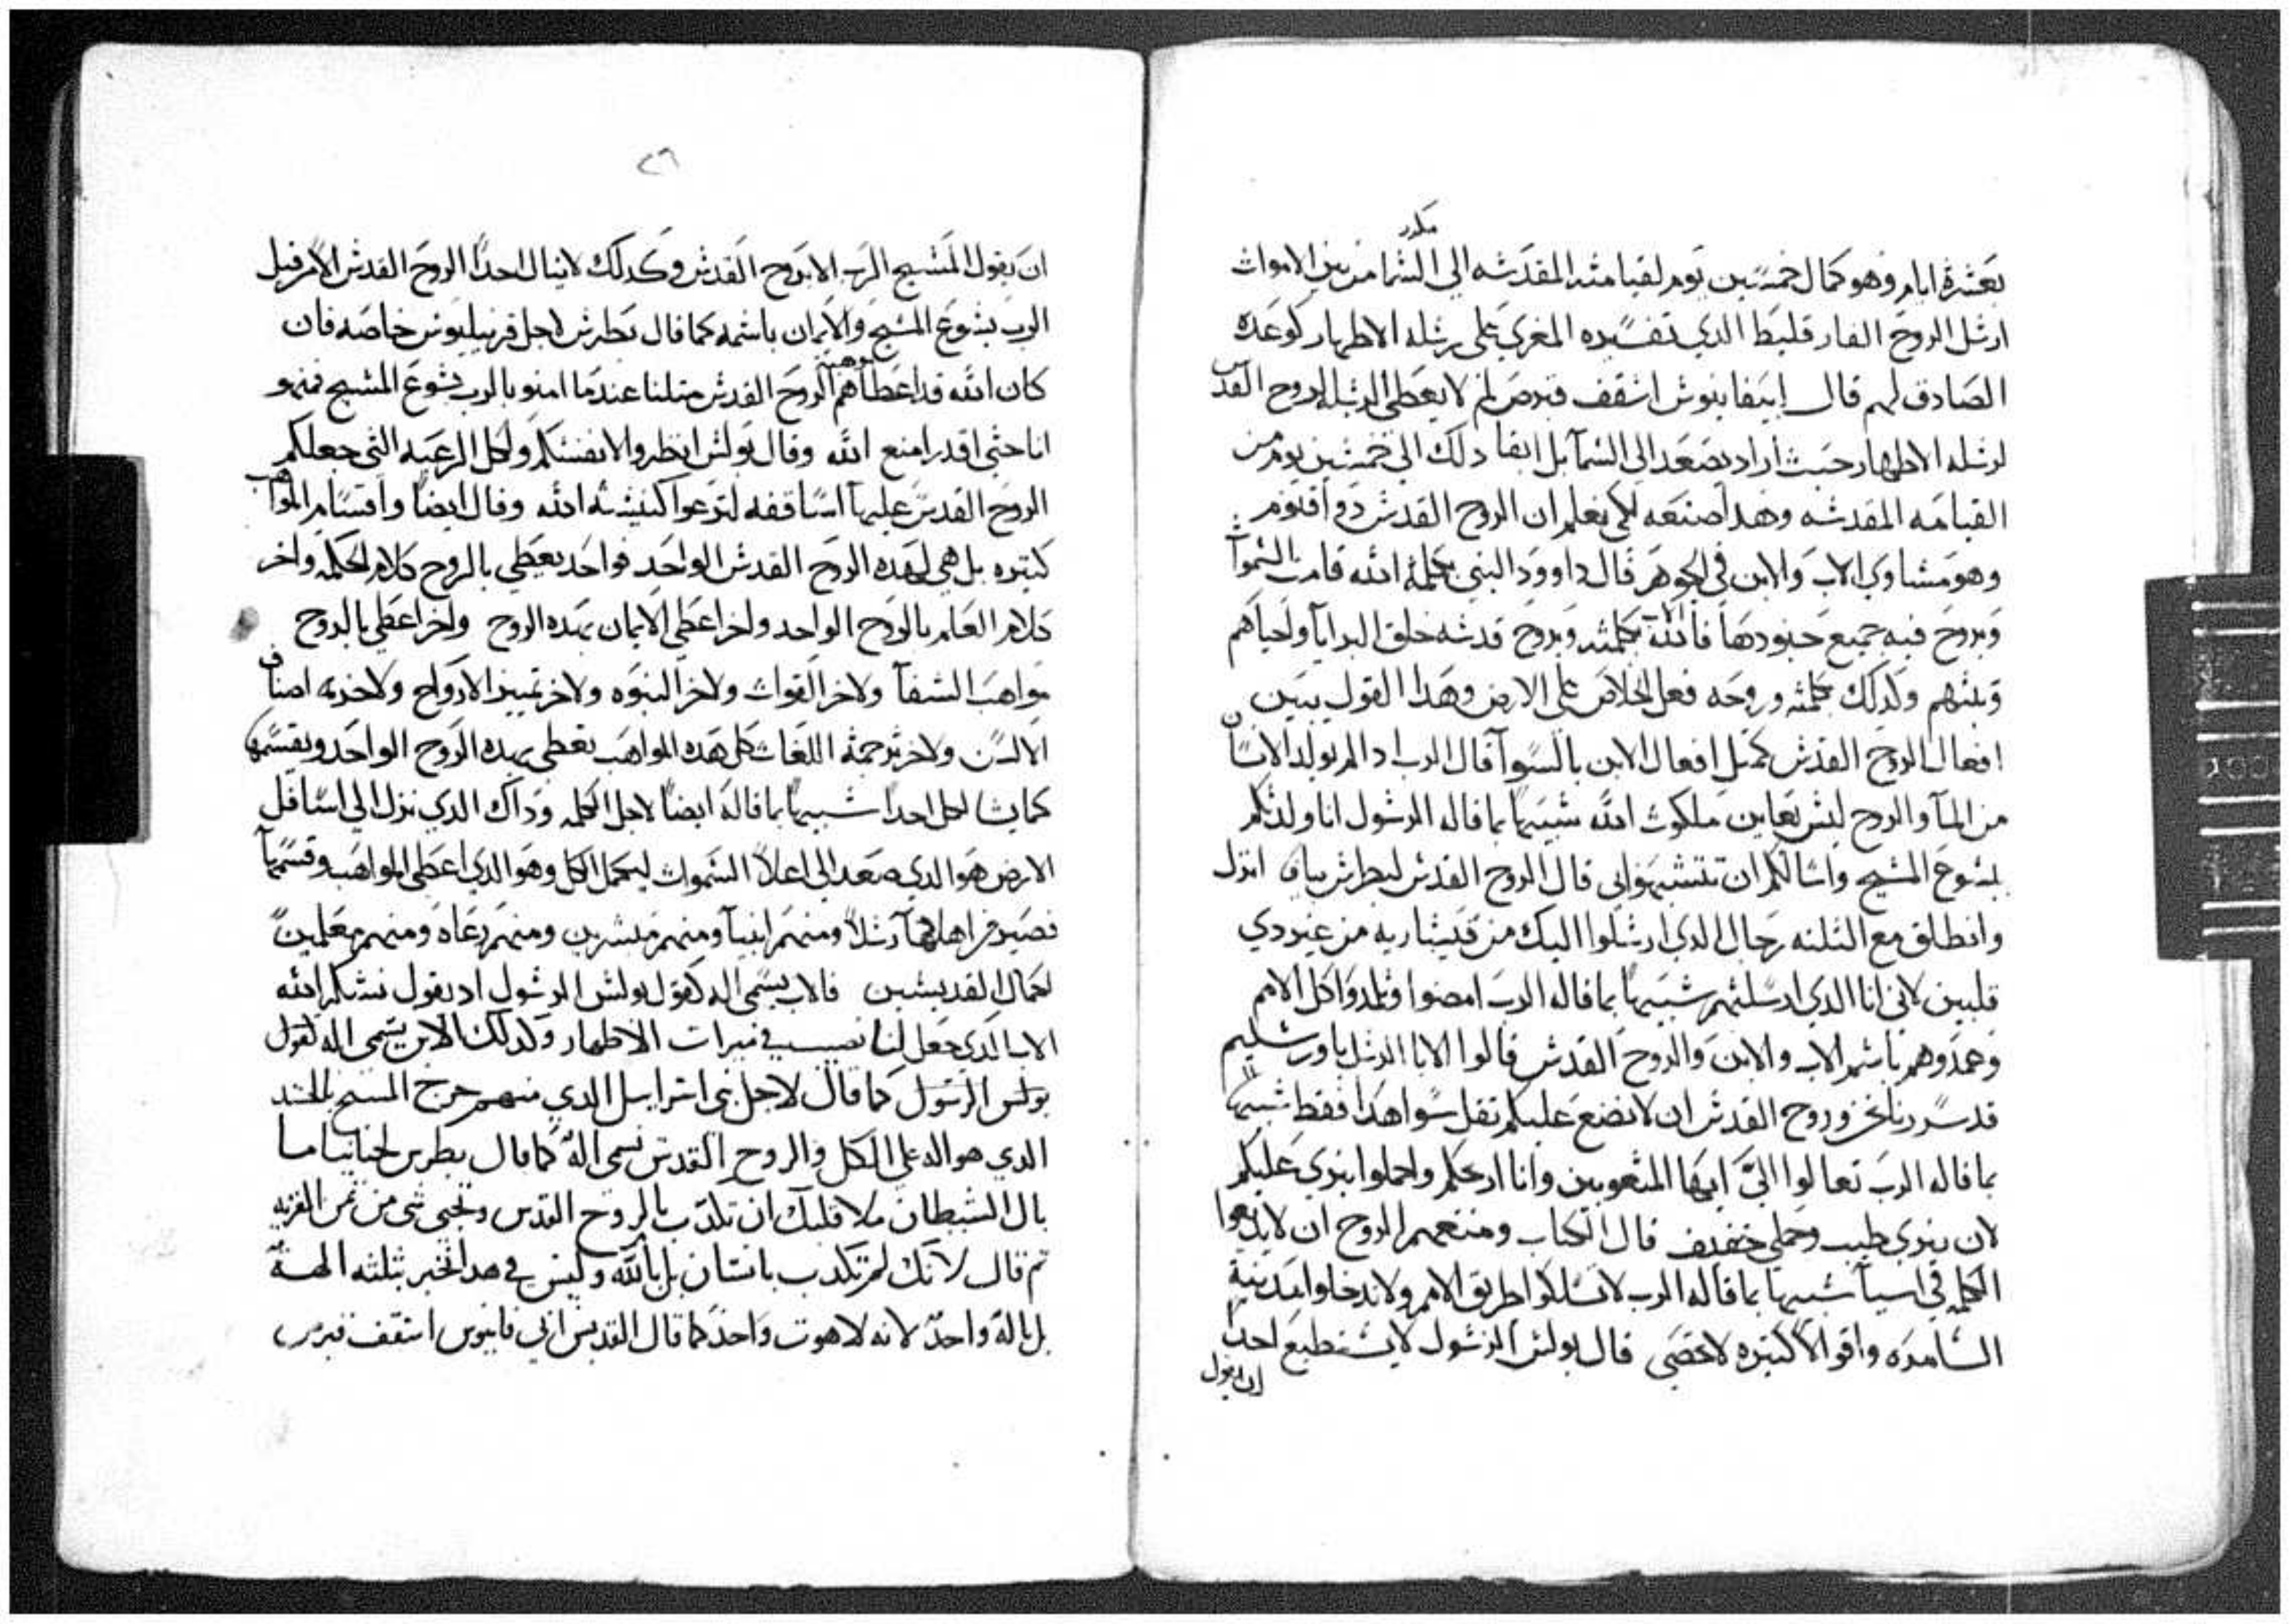 مكرر
بعشرة ايام وهو كمال خمسين يوم لقيامته المقدسه الي السما من بين الاموات
ارسل الروح الفارقليط الدي تفسيره المعزي علي رسله الاطهار كوعده
الصادق لهم قال ابيفانيوس اسقف قبرص لم لا يعطي لرسله الروح القدس
لرسله الاطهار حيث اراد يصعد الي السما بل ابقا دلك الي خمسين يوم من
القيامه المقدسه وهدا صنعه لكي يعلم ان الروح القدس دو اقنوم
وهو مساوي الاب والابن في الجوهر قال داوود النبي بكلمة الله قامت السموات
وبروح فيه جميع جنودها فالله الاب بكلمته وبروح قدسه خلق البرايا واحياهم
وثبتهم ولدلك بكلمته وروحه فعل الخلاص علي الارض وهدا القول يبين
افعال الروح القدس كمثل افعال الابن بالسوا قال الرب ادا لم يولد الانسان
من الما والروح ليس يعاين ملكوت الله شبيها بما قاله الرسول انا ولدتكم
بيسوع المسيح واسالكم ان تتشبهوا بي قال الروح القدس لبطرس بيافا انزل
وانطلق مع التلته رجال الدي ارسلوا اليك من قيساريه من عند
قلبين لاني انا الدي ارسلتهم شبيها بما قاله الرب امضوا وتلمدوا كل الامم
وعمدوهم باسم الاب والابن والروح القدس قالوا الابا الرسل باورشليم
قد سررنا نحن وروح القدس ان لا نضع عليكم تقل سوا هدا فقط شبيها
بما قاله الرب تعالوا الي ايها المتعوبين وانا اريحكم واحملوا نيري عليكم
لان نيري طيب وحملي خفيف قال الكتاب ومنعهم الروح ان لا يديعوا
الكلمه في اسيا شبيها بما قاله الرب لا تسلكوا طريق الامم ولا تدخلوا مدينة
السامره واقوالا كتيره لا تحصي قال بولس الرسول لا يستطيع احدا
ان يقول
٢٦
ان يقول المسيح الرب الا بروح القدس وكدلك لا ينال احدا الروح القدس الا من قبل
الرب يسوع المسيح والايمان باسمه كما قال بطرس لاجل قرنيليوس خاصه فان
كان الله قد اعطاهم موهبة الروح القدس متلنا عندما امنو بالرب يسوع المسيح فمن هو
انا حتي اقدر امنع الله وقال بولس انظروا لانفسكم ولكل الرعيه التي جعلكم
الروح القدس عليها اساقفه لترعوا كنيسة الله وقال ايضا واقسام المواهب
كتيره بل هي لهده الروح القدس الواحد فواحد يعطي بالروح كلام الحكمه واخر
كلام العلم بالروح الواحد واخر اعطي الايمان بهده الروح واخر اعطي بالروح
مواهب الشفا ولاخر القوات ولاخر النبوه ولاخر تمييز الارواح ولاخر به اصناف
الالسن ولاخر ترجمة اللغات كل هده المواهب تعطي بهده الروح الواحد ويقسمها
كما يشا لكل احدا شبيها بما قاله ايضا لاجل الكلمه وداك الدي نزل الي اسافل
الارض هو الدي صعد الي اعلا السموات ليكمل الكل وهو الدي اعطي المواهب وقسمها
فصير من اهلها رسلا ومنهم انبيا ومنهم مبشرين ومنهم رعاه ومنهم معلمين
لكمال القديسين فالاب يسمي اله كقول بولس الرسول اد يقول نشكر الله
الاب الدي جعل لنا نصيب في ميرات الاطهار وكدلك الابن يسمي اله لقول
بولس الرسول كما قال لاجل بني اسراييل الدي منهم خرج المسيح بالجسد
الدي هو اله علي الكل والروح القدس يسمي اله كما قال بطرس لحنانيا ما
بال الشيطان ملا قلبك ان تكدب بالروح القدس وتخبي شي من تمن القريه
تم قال لانك لم تكدب بانسان بل بالله وليس في هدا الخبر بتلته الهة
بل باله واحد لانه لاهوت واحد كما قال القديس ابيفانيوس اسقف قبرص